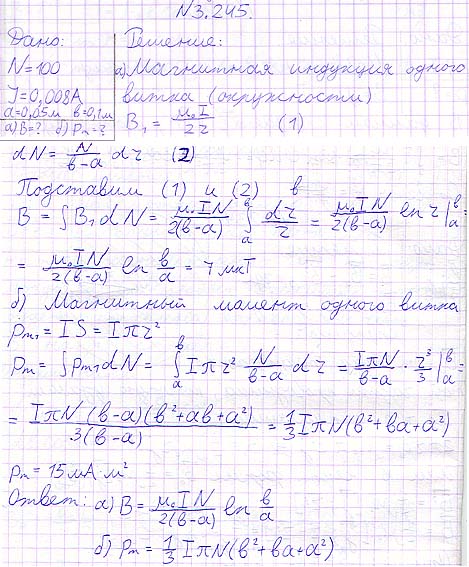 N3.245.
Дано:
N=100
I=0,008А
a=0,05м b=0,1м
а) B=? б) Pm=?
Решение:
а) Магнитная индукция одного
витка (окружности)
B₁ = μ₀I / 2r (1)
dN = N/(b-a) dr (2)
Подставим (1) и (2) в
B = ∫B₁dN = μ₀IN/2(b-a) ∫ₐᵇ dr/r = μ₀IN/2(b-a) ln r |ₐᵇ =
= μ₀IN/2(b-a) ln b/a = 7 мкТ
б) Магнитный момент одного витка
pm₁ = IS = Iπr²
pm = ∫pm₁dN = ∫ₐᵇ Iπr² N/(b-a) dr = IπN/(b-a) · r³/3 |ₐᵇ =
= IπN(b-a)(b²+ab+a²) / 3(b-a) = 1/3 IπN(b²+ba+a²)
pm = 15мА·м²
Ответ: а) B = μ₀IN/2(b-a) ln b/a
б) pm = 1/3 IπN(b²+ba+a²)